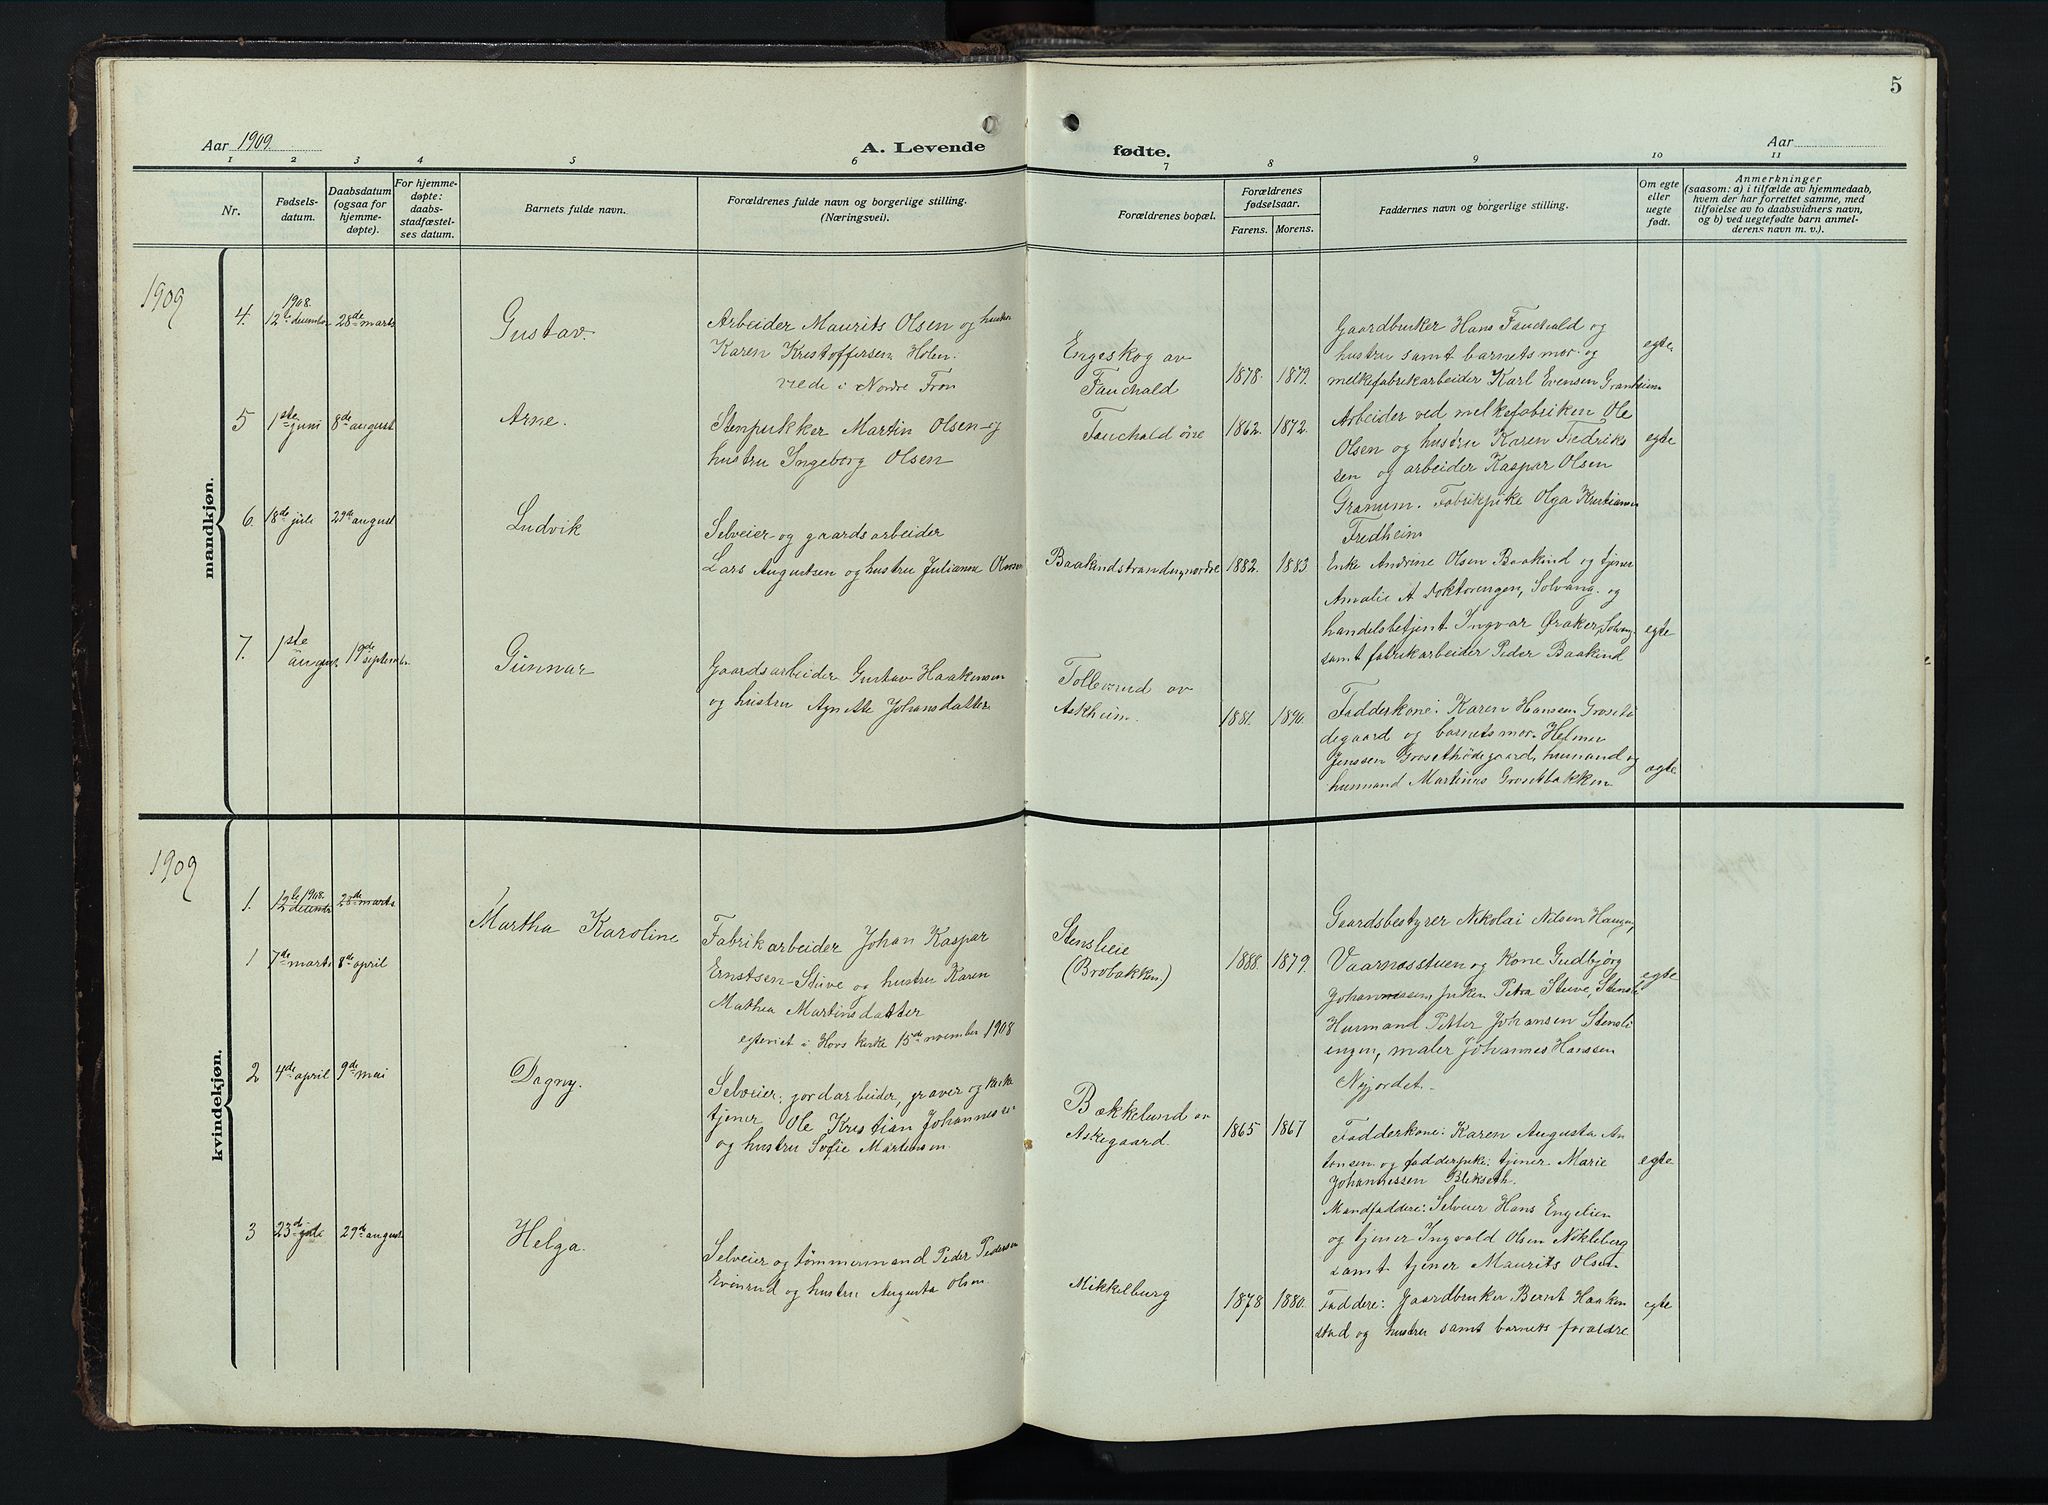 5
Aar 1909.
A. Levende
fødte.
Aar
1
2
3
4
5
6
7
8
9
10
11
Nr.
Fødsels-
datum.
Daabsdatum
(ogsaa for
hjemme-
døpte).
For hjemme-
døpte:
daabs-
stadfæstel-
ses datum.
Barnets fulde navn.
Forældrenes fulde navn og borgerlige stilling.
(Næringsvei).
Forældrenes bopæl.
Forældrenes
fødselsaar.
Farens.
Morens.
Faddernes navn og borgerlige stilling.
Om egte
eller
uegte
født.
Anmerkninger
(saasom: a) i tilfælde av hjemmedaab,
hvem der har forrettet samme, med
tilføielse av to daabsvidners navn,
og b) ved uegtefødte barn anmel-
derens navn m. v.).
mandkjøn.
1909
4.
1908.
12te december
28de marts
Gustav.
Arbeider Maurits Olsen og hustru
Karen Kristoffersen Holen.
viede i Nordre Fron
Engeskog av
Fauchald
1878.
1879.
Gaardbruker Hans Fauchald og
hustru samt barnets mor og
melkefabrikarbeider Karl Evensen Granheim
egte.
5
1ste juni
8de august
Arne.
Stenpukker Martin Olsen og
hustru Ingeborg Olsen
Fauchald øvre
1862.
1872.
Arbeider ved melkefabriken Ole
Olsen og hustru Karen Fredriks
sen og arbeider Kaspar Olsen
Granum. Fabrikpike Olga Kristiansen
Fredheim
egte
6.
18de juli
29de august
Ludvik
Selveier og gaardsarbeider
Lars Augustsen og hustru Julianne Olsen
Baakindstranden, nordre
1882.
1883
Enke Andrine Olsen Baakind og tjener
Amalie A. Doktorengen, Solvang. og
handelsbetjent Ingvar Øraker, Solvang
samt fabrikarbeider Peder Baakind
egte
7.
1ste
august
19de
september
Gunnar
Gaardsarbeider Gustav Haakensen
og hustru Agnette Johansdatter
Tollevrud av
Askheim.
1881.
1890.
Fadderkone: Karen Hansen Groset
degaard og barnets mor. Helmer
Jenssen Grosethødegaard, husmand og
husmand Martinus Grosetbakken
egte
kvindekjøn.
1909
1.
12te 1908.
decembr
28de marts
1
7de marts
8de april
Martha Karoline
Fabrikarbeider Johan Kaspar
Ernstsen Stuve og hustru Karen
Mathea Martinsdatter
egteviet i Hovs kirke 15de november 1908
Stensleie
(Brobakken)
1888.
1879.
Gaardsbestyrer Nikolai Nilsen Haugen,
Vaarnæsstuen og Kone Gudbjørg
Johannessen piken Petra Stuve, Stensli
Husmand Petter Johansen Stensli
engen, maler Johannes Hanssen
Nyjordet.
egte
2
4de april
9de mai
Dagny.
Selveier, jordarbeider, graver og kirke
tjener Ole Kristian Johannesen
og hustru Sofie Martinsen
Bækkelund av
Askegaard.
1865
1867
Fadderkone: Karen Augusta An
tonsen og fadderpike: tjener Marie
Johannessen Blikseth.
Mandfaddere: Selveier Hans Engelien
og tjener Ingvald Olsen Nikleberg
samt tjener Maurits Olset.
egte
3
23de juli
29de august
Helga.
Selveier og tømmermand Peder Pedersen
Evenrud og hustru Augusta Olsen
Mikkelburg
1878
1880.
Faddere: Gaardbruker Bernt Haaken
stad og hustru samt barnets forældre
egte